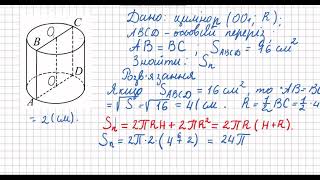 Дано: циліндр (OO₁; R);
ABCD – осьовий переріз;
AB = BC, S_ABCD = 16 см²
Знайти: Sп
Розв'язання
Якщо S_ABCD = 16 см², то AB = B
= √S = √16 = 4 (см. R = ½ BC = ½·4
= 2 (см).
Sп = 2πRH + 2πR² = 2πR (H+R).
Sп = 2π·2·(4+2) = 24π
B
C
O
A
D
O